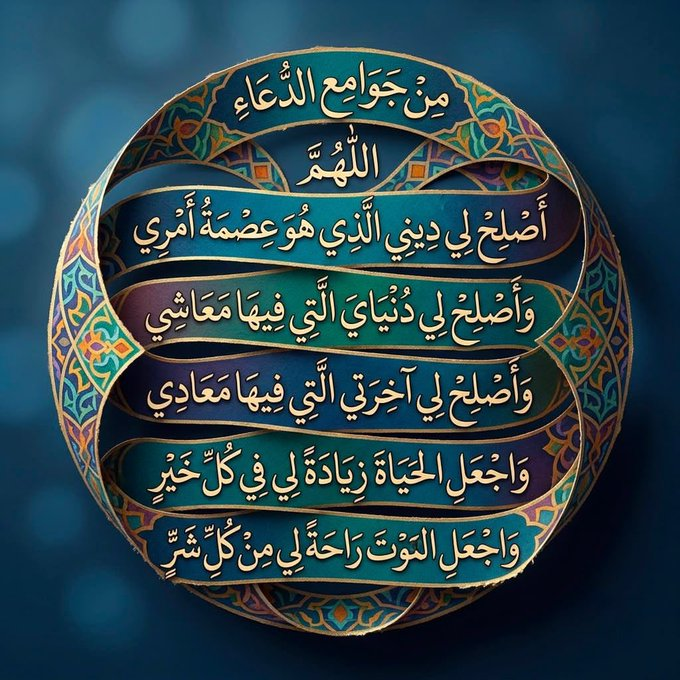 مِنْ جَوَامِعِ الدُّعَاءِ
اللّٰهُمَّ
أَصْلِحْ لِي دِينِي الَّذِي هُوَ عِصْمَةُ أَمْرِي
وَأَصْلِحْ لِي دُنْيَايَ الَّتِي فِيهَا مَعَاشِي
وَأَصْلِحْ لِي آخِرَتِي الَّتِي فِيهَا مَعَادِي
وَاجْعَلِ الحَيَاةَ زِيَادَةً لِي فِي كُلِّ خَيْرٍ
وَاجْعَلِ المَوْتَ رَاحَةً لِي مِنْ كُلِّ شَرٍّ